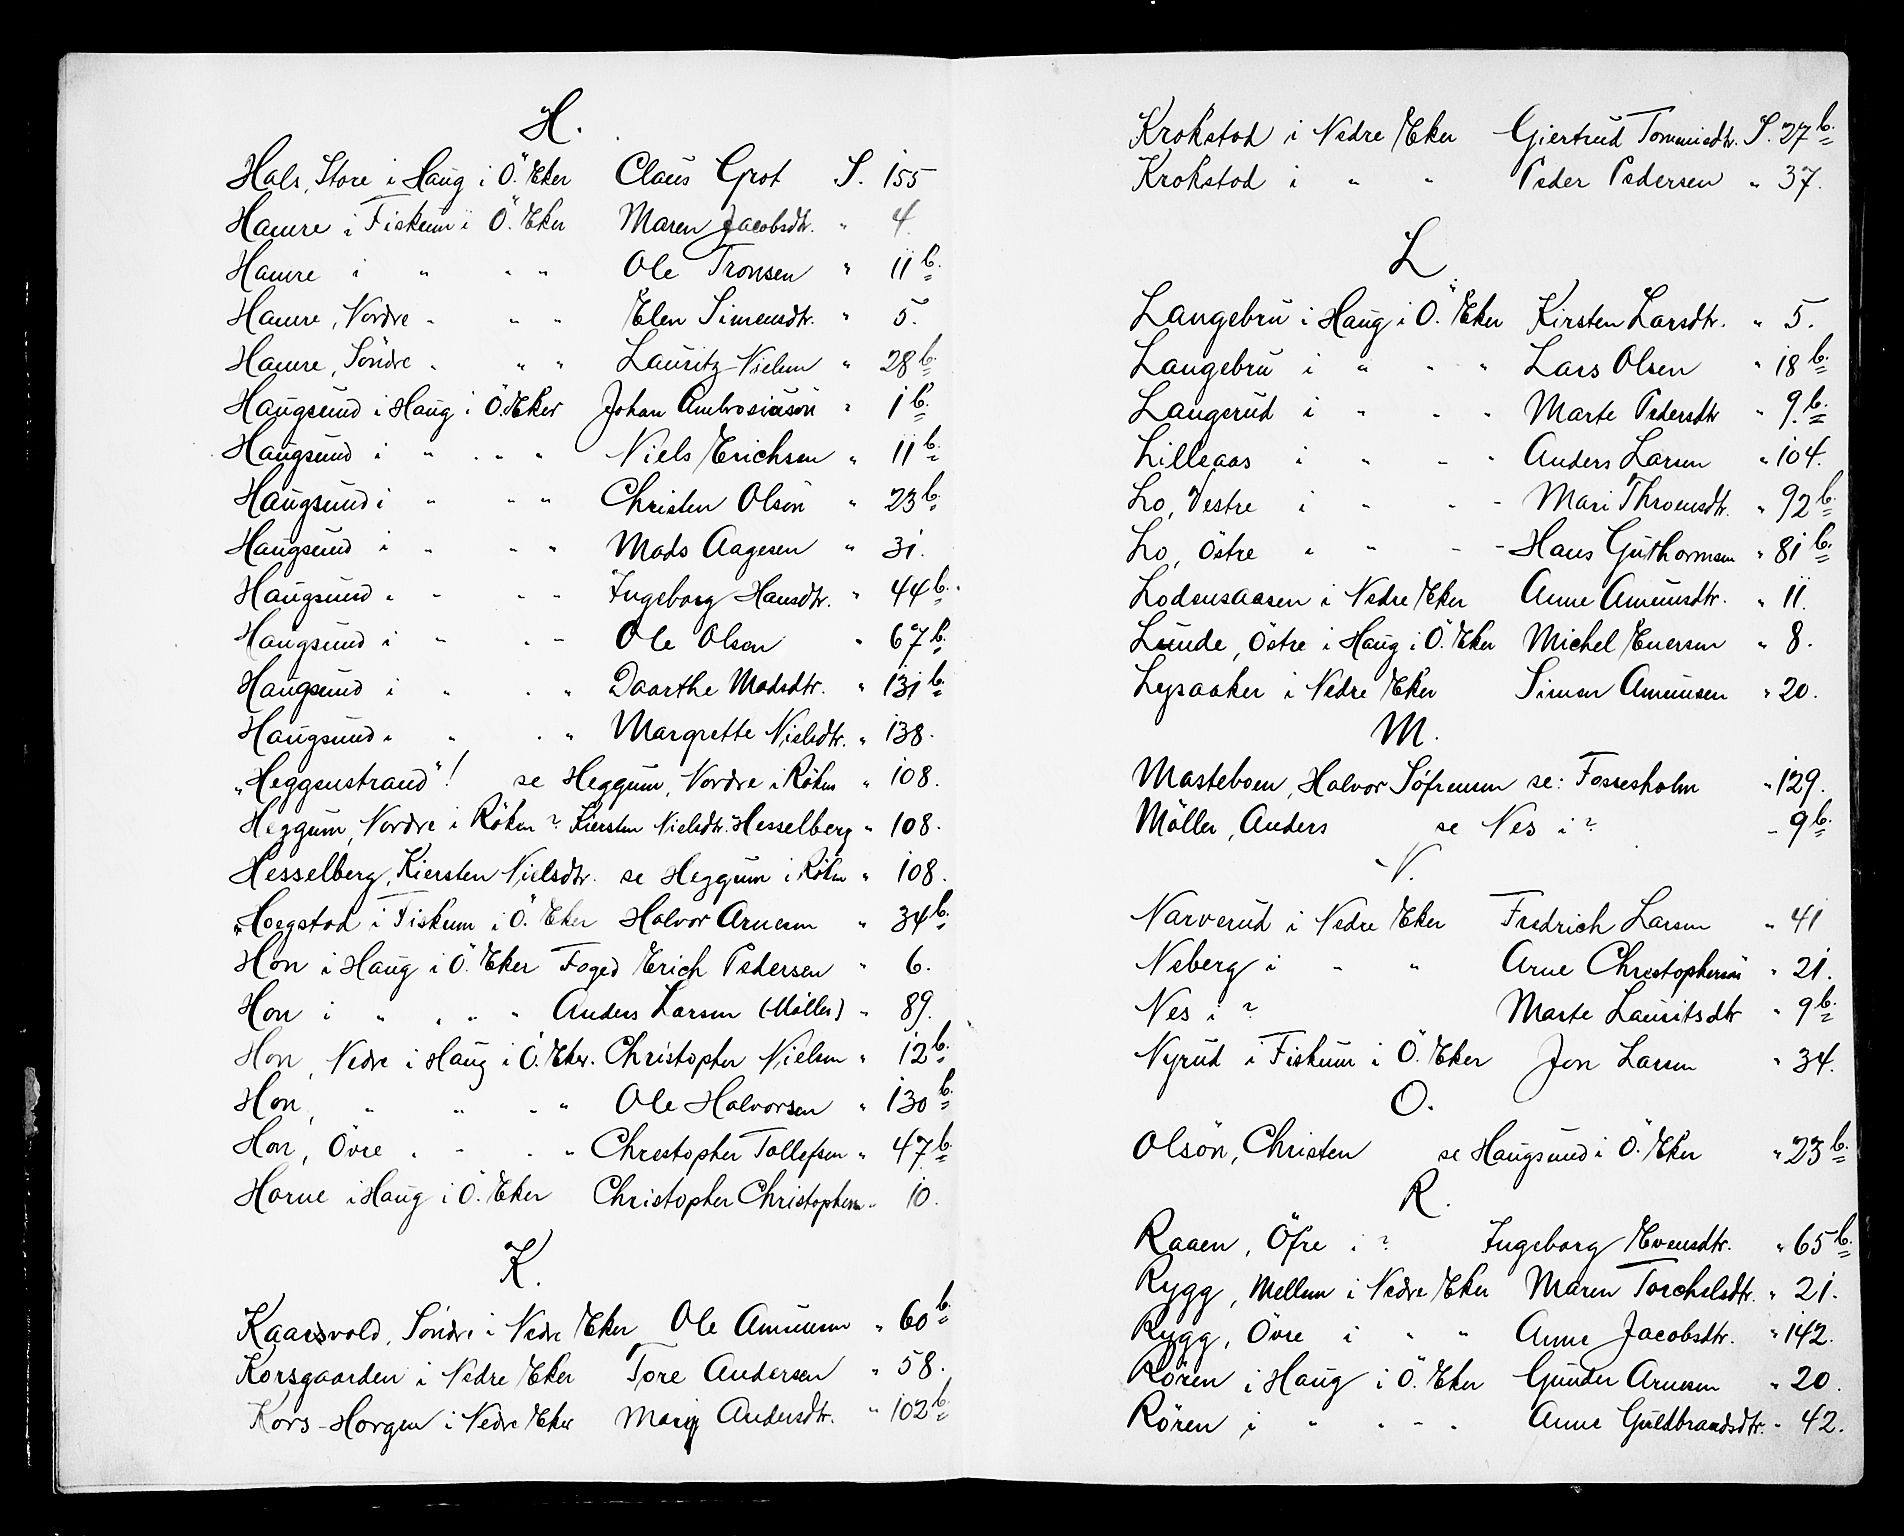 H.
Hals, Store i Haug i Ö. Eker Claus Grot S. 155
Hamre i Fiskum i Ö. Eker Maren Jacobsdtr. " 4
Hamre i " " " Ole Tronsen " 11 b.
Hamre, Nordre " " " Elen Simensdtr. " 5.
Hamre, Söndre " " " Lauritz Nielsen " 28 b.
Haugsund i Haug i Ö. Eker Johan Ambrosiusön " 1 b.
Haugsund i " " " Niels Erichsen " 11 b.
Haugsund i " " " Christen Olsön " 23 b.
Haugsund i " " " Mads Aagesen " 31.
Haugsund " " " " Ingeborg Hansdtr. " 44 b.
Haugsund i " " " Ole Olsen " 67 b.
Haugsund i " " " Daarthe Madsdtr. " 131 b.
Haugsund " " " " Margrette Nielsdtr. " 138.
"Heggenstrand"! se Heggum, Nordre i Röken " 108.
Heggum, Nordre i Röken ? Kiersten Nielsdtr. Hesselberg " 108.
Hesselberg, Kiersten Nielsdtr. se Heggum i Röken " 108.
Hoegstad i Fiskum i Ö. Eker Halvor Arnesen " 34 b.
Hon i Haug i Ö. Eker Foged Erich Pedersen " 6.
Hon i " " " " Anders Larsen (Möller) " 89.
Hon, Nedre i Haug i Ö. Eker. Christopher Nielsen " 12 b.
Hon, " " " " Ole Halvorsen " 130 b.
Hon, Övre " " " " Christopher Tollefsen " 47 b.
Horne i Haug i Ö. Eker Christopher Christophersen " 10.
K.
Kaarsvold, Söndre i Nedre Eker Ole Amunsen " 60 b.
Korsgaarden i Nedre Eker Tore Andersen " 58.
Kors-Horgen i Nedre Eker Mari Andersdtr. " 102 b.
Krokstad i Nedre Eker Giertrud Tommisdtr. S. 27 b.
Krokstad i " " Peder Pedersen " 37.
L.
Langebru i Haug i Ö. Eker Kirsten Larsdtr. " 5.
Langebru i " " " Lars Olsen " 18 b.
Langerud i " " " Marte Pedersdtr " 9. b.
Lilleaas i " " " Anders Larsen " 104.
Lo, Vestre i " " " Mari Throensdtr. " 92 b.
Lo, Östre " " " " Hans Guthormsen " 81 b.
Lodensaasen i Nedre Eker Anne Amunsdtr. " 11.
Lunde, Östre i Haug i Ö. Eker Michel Enersen " 8.
Lysaaker i Nedre Eker Simen Amunsen " 20.
M.
Masteboen, Halvor Söfrensen se: Fossesholm " 129.
Möller, Anders se Nes i ? " 9 b.
N.
Narverud i Nedre Eker Fredrich Larsen " 41
Neberg i " " Arne Christophersön " 21.
Nes i ? Marte Lauritsdtr " 9 b.
Nyrud i Fiskum i Ö. Eker Jon Larsen " 34.
O.
Olsön, Christen se Haugsund i Ö. Eker " 23 b.
R.
Raaen, Öfre i ? Ingeborg Evensdtr. " 65 b.
Rygg, Mellem i Nedre Eker Maren Torchelsdtr. " 21.
Rygg, Övre i " " Anne Jacobsdtr. " 142.
Rören i Haug i Ö. Eker Gunder Arnesen " 20.
Rören i " " " " Anne Guldbrandsdtr. " 42.